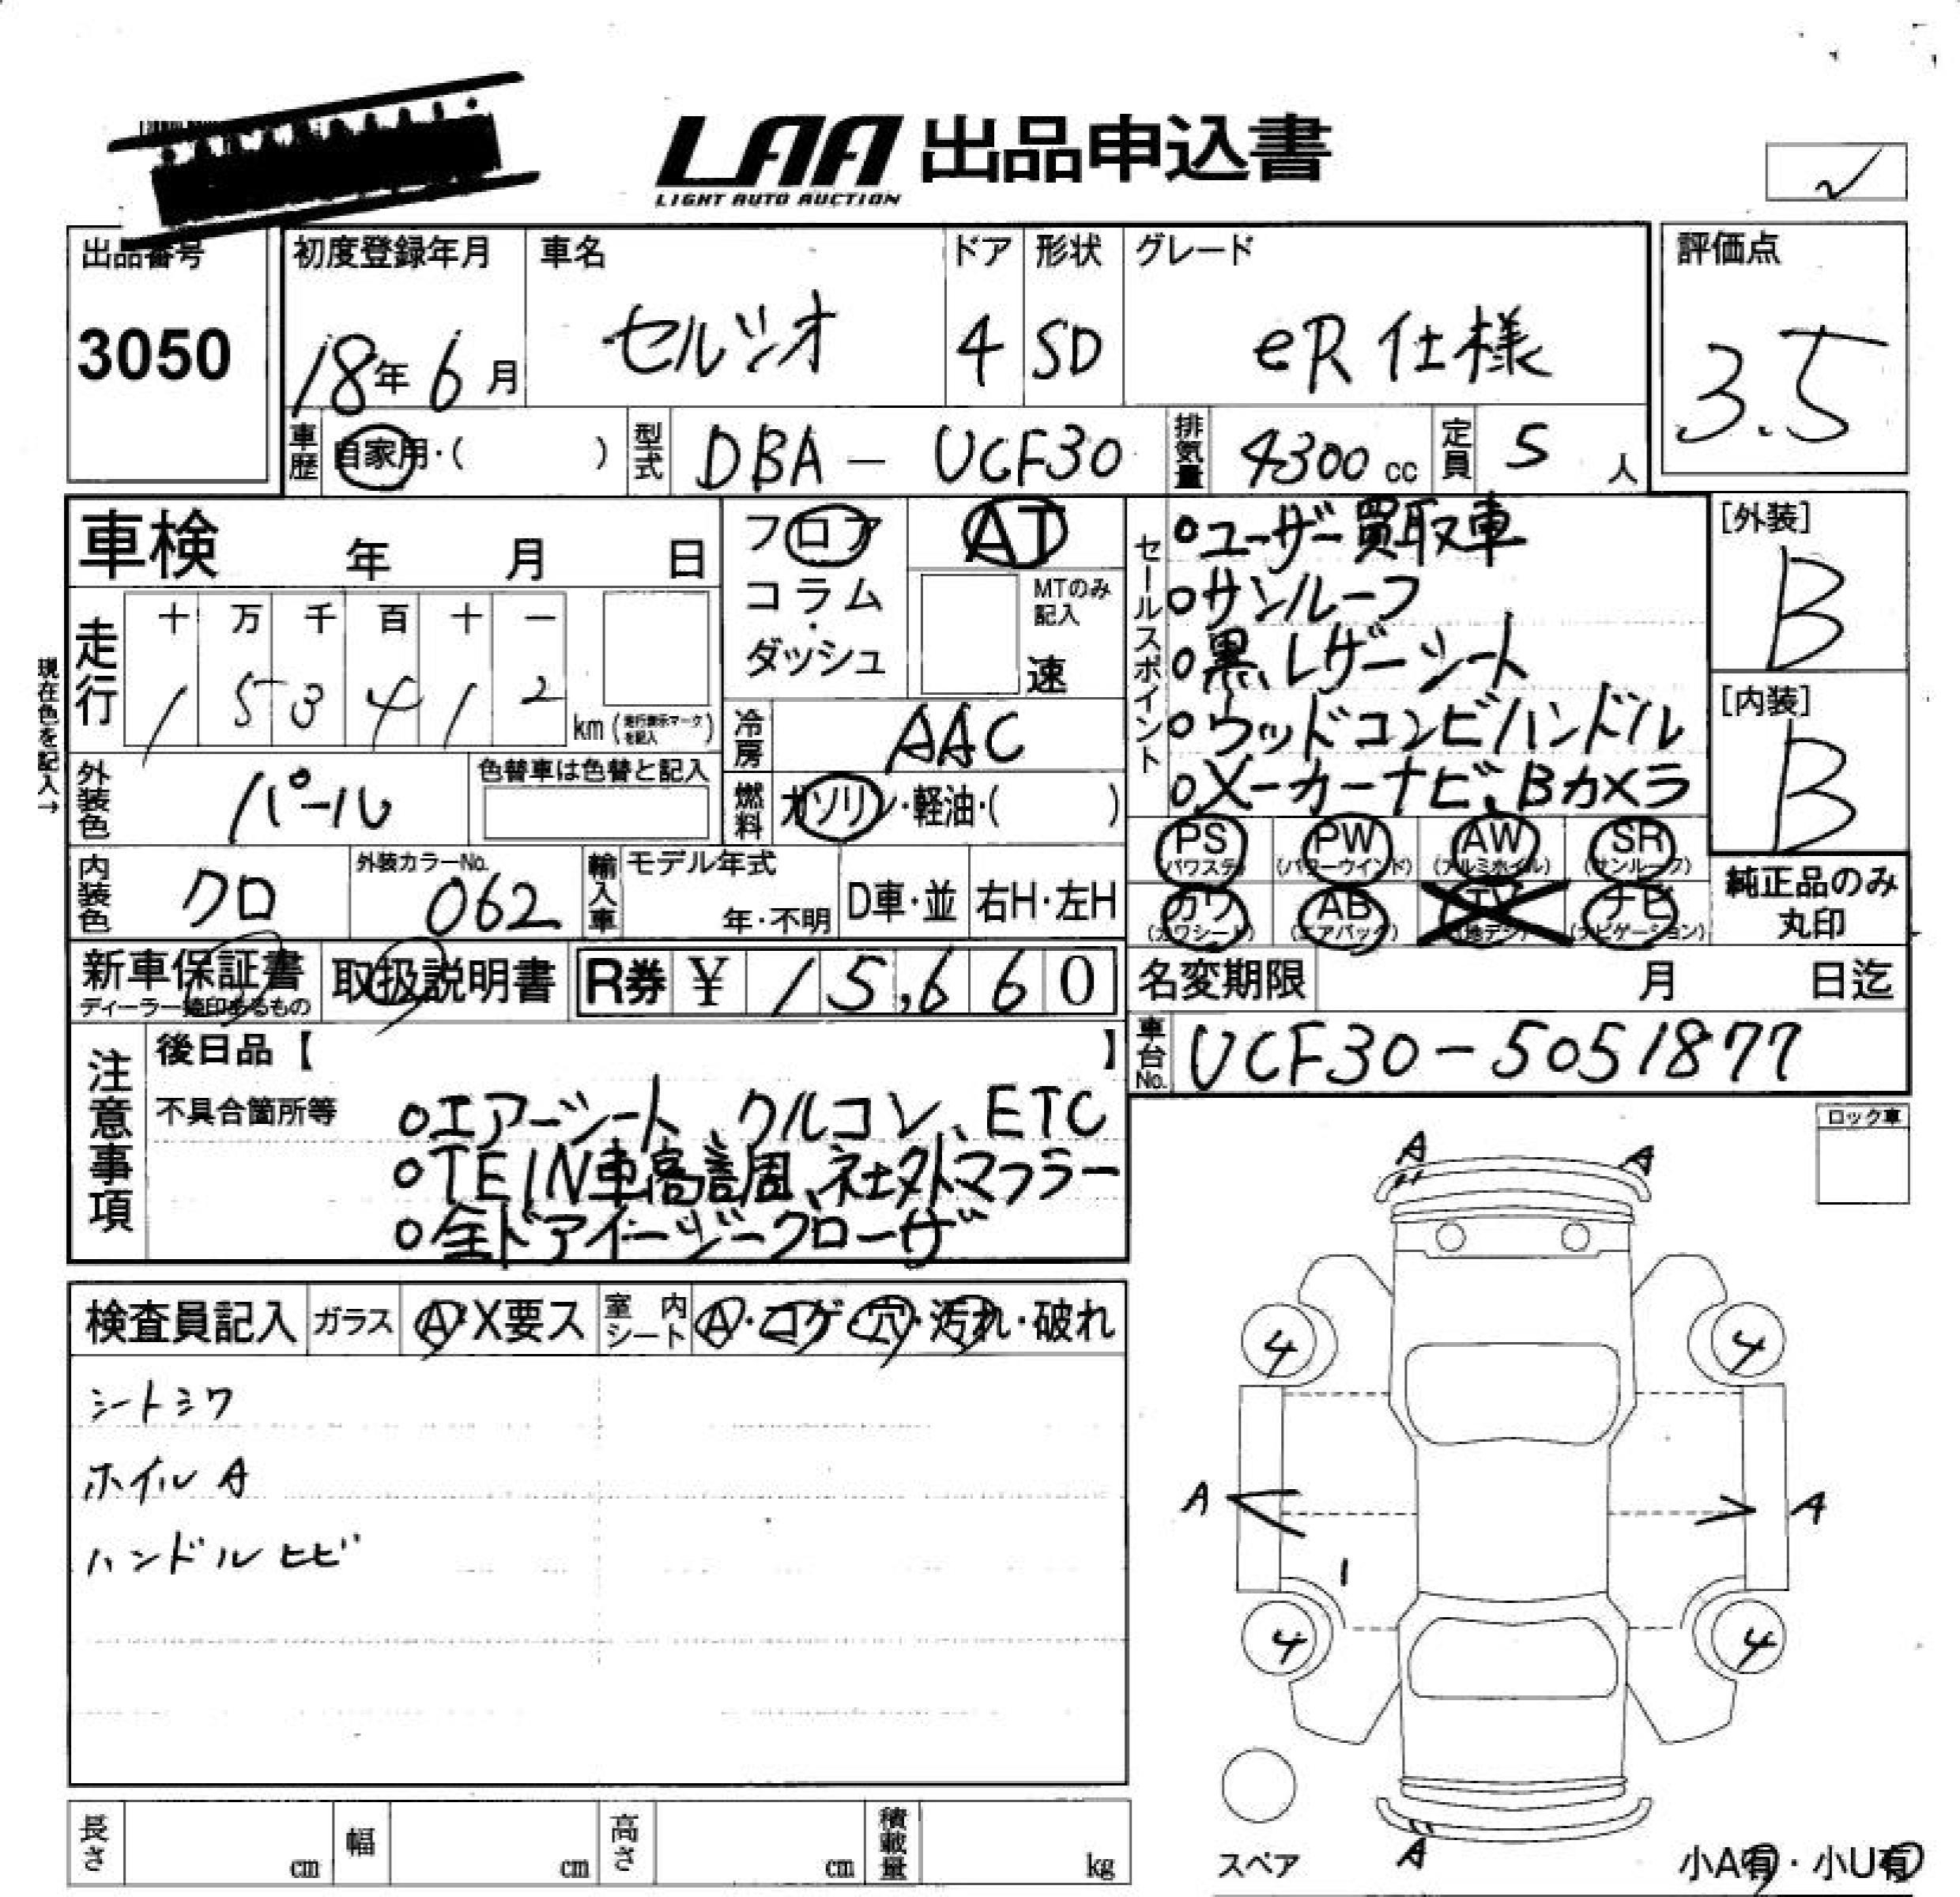 LAA 出品申込書
LIGHT AUTO AUCTION
出品番号 初度登録年月 車名 ドア 形状 グレード 評価点
3050 18年6月 セルシオ 4 SD eR仕様 3.5
車歴 自家用・( ) 型式 DBA-UCF30 排気量 4300cc 定員 5人
車検 年 月 日 フロア AT
コラム・ダッシュ MTのみ記入 速
現在色を記入→
走行 十 万 千 百 十 一
1 5 3 4 1 2 km (走行表示マークを記入)
冷房 AAC
外装色 パール 色替車は色替と記入
燃料 ガソリン・軽油・( )
内装色 クロ 外装カラーNo. 062 輸入車 モデル年式 年・不明 D車・並 右H・左H
セールスポイント
○ユーザー買取車
○サンルーフ
○黒レザーシート
○ウッドコンビハンドル
○メーカーナビ、Bカメラ
[外装]
B
[内装]
B
PS (パワステ) PW (パワーウインド) AW (アルミホイル) SR (サンルーフ)
カワ (カワシート) AB (エアバック) TV (地デジ) ナビ (ナビゲーション)
純正品のみ
丸印
新車保証書 取扱説明書 R券 ¥ 15,660
名変期限 月 日迄
車台No. UCF30-5051877
注意事項
後日品【 】
不具合箇所等 ○エアーシート、クルコン、ETC
○TEIN車高調、社外マフラー
○全ドアイージークローザ
ロック車
検査員記入 ガラス A X要ス 室内シート A・コゲ・穴・汚れ・破れ
シートシワ
ホイルA
ハンドルヒビ
A A
4 4
A A
1
4 4
A
スペア
小A有・小U有
長さ cm 幅 cm 高さ cm 積載量 kg